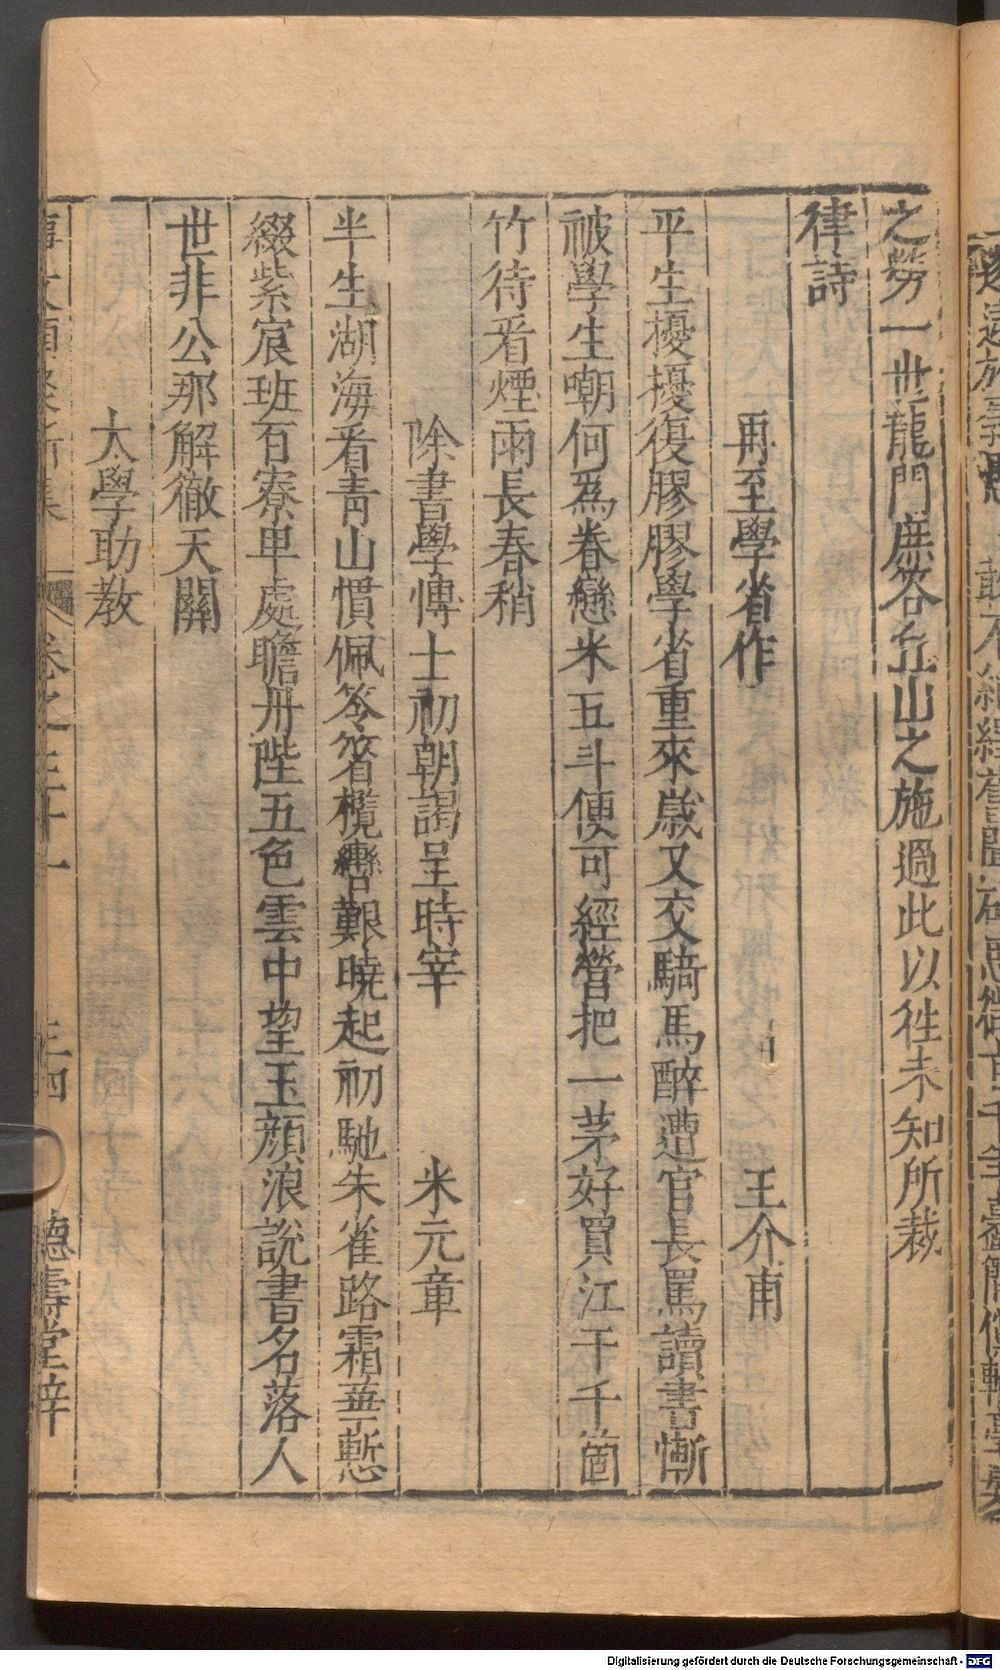 之勞一世龍門庶答丘山之施過此以徃未知所裁
律詩
再至學省作 王介甫
平生擾擾復膠膠學省重來歲又交騎馬醉遭官長罵讀書慚
被學生嘲何爲眷戀米五斗便可經營把一茅好買江干千箇
竹待看煙雨長春稍
除書學博士初朝謁呈時宰 米元章
半生湖海看青山慣佩笭箵攬轡艱曉起初馳朱雀路霜華慙
綴紫宸班百寮卑處瞻丹陛五色雲中望玉顔浪說書名落人
世非公那解徹天關
太學助教
事文類聚新集 卷之三十一 三四 德壽堂梓
Digitalisierung gefördert durch die Deutsche Forschungsgemeinschaft - DFG